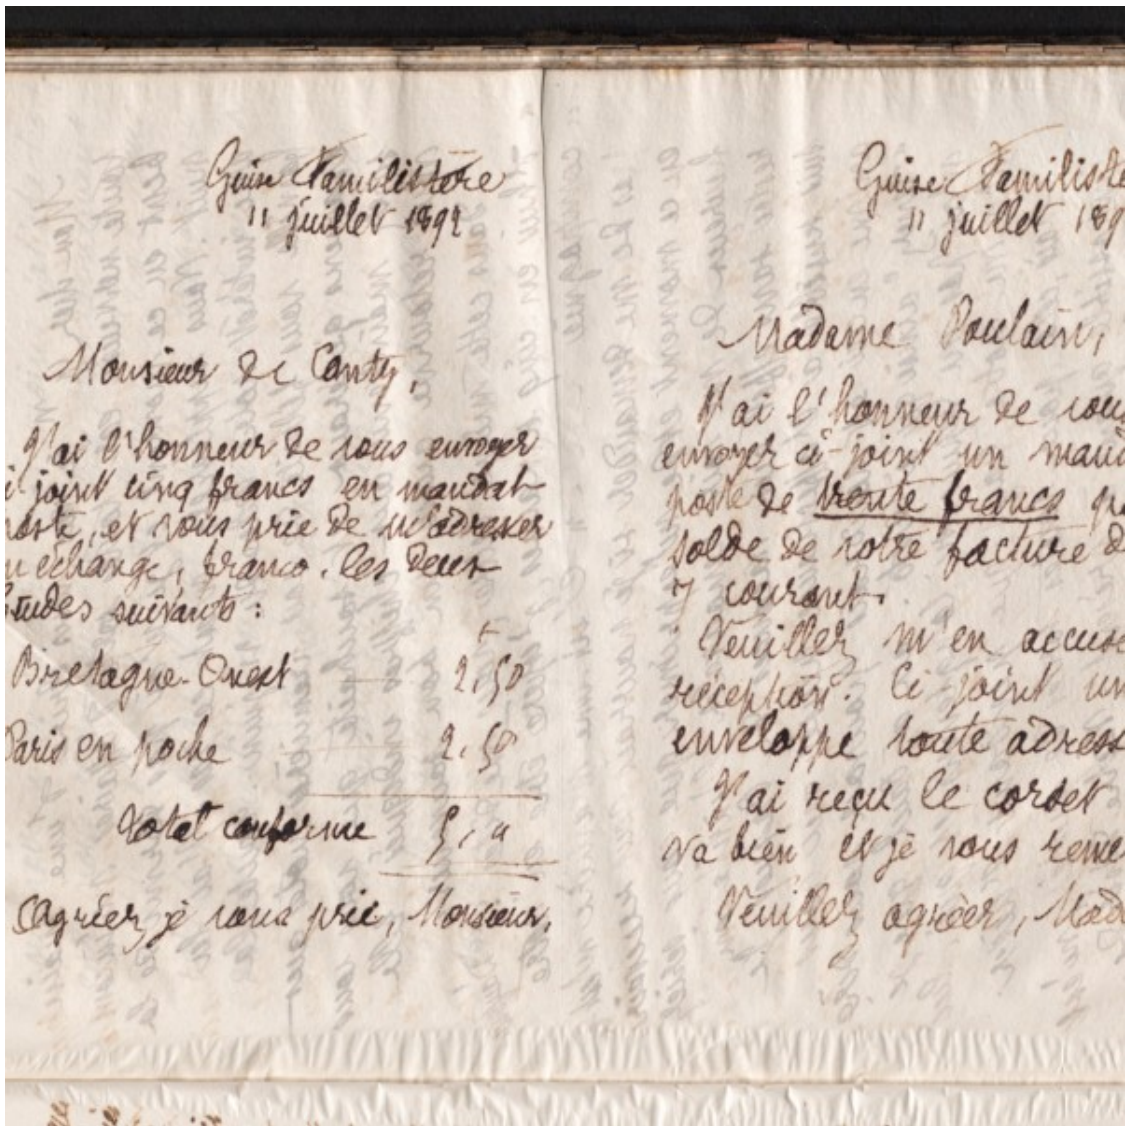 Guise Familistère
11 juillet 1892
Monsieur de Canty,
J'ai l'honneur de vous envoyer
i-joint cinq francs en mandat
poste, et vous prie de m'adresser
n échange, franco, les deux
tudes suivants :
Bretagne-Ouest 2,50
Paris en poche 2,50
total conforme 5, "
Agréez, je vous prie, Monsieur,
Guise Familistè
11 juillet 189
Madame Poulain,
J'ai l'honneur de vous
envoyer ci-joint un mand
poste de trente francs po
solde de votre facture d
7 courant.
Veuillez m'en accuse
réception. Ci-joint un
enveloppe toute adress
J'ai reçu le corset
va bien et je vous remer
Veuillez agréer, Mad